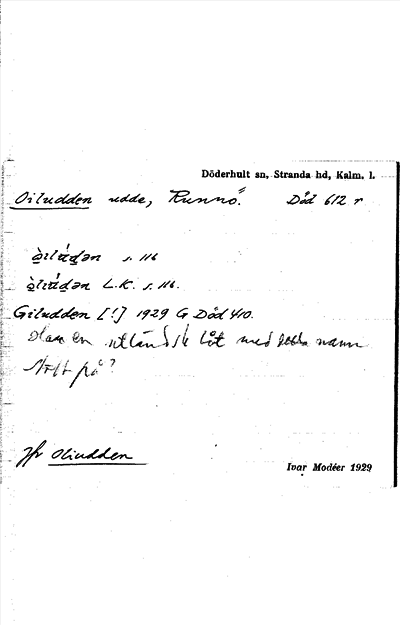 Döderhult sn, Stranda hd, Kalm. l.
Oiludden udde, Runnö. Död 612 r
s. 116
L.K. s. 116.
Giludden [!] 1929 G Död 410.
en utländsk båt med detta namn
stött på?
Jfr Oliudden
Ivar Modéer 1929